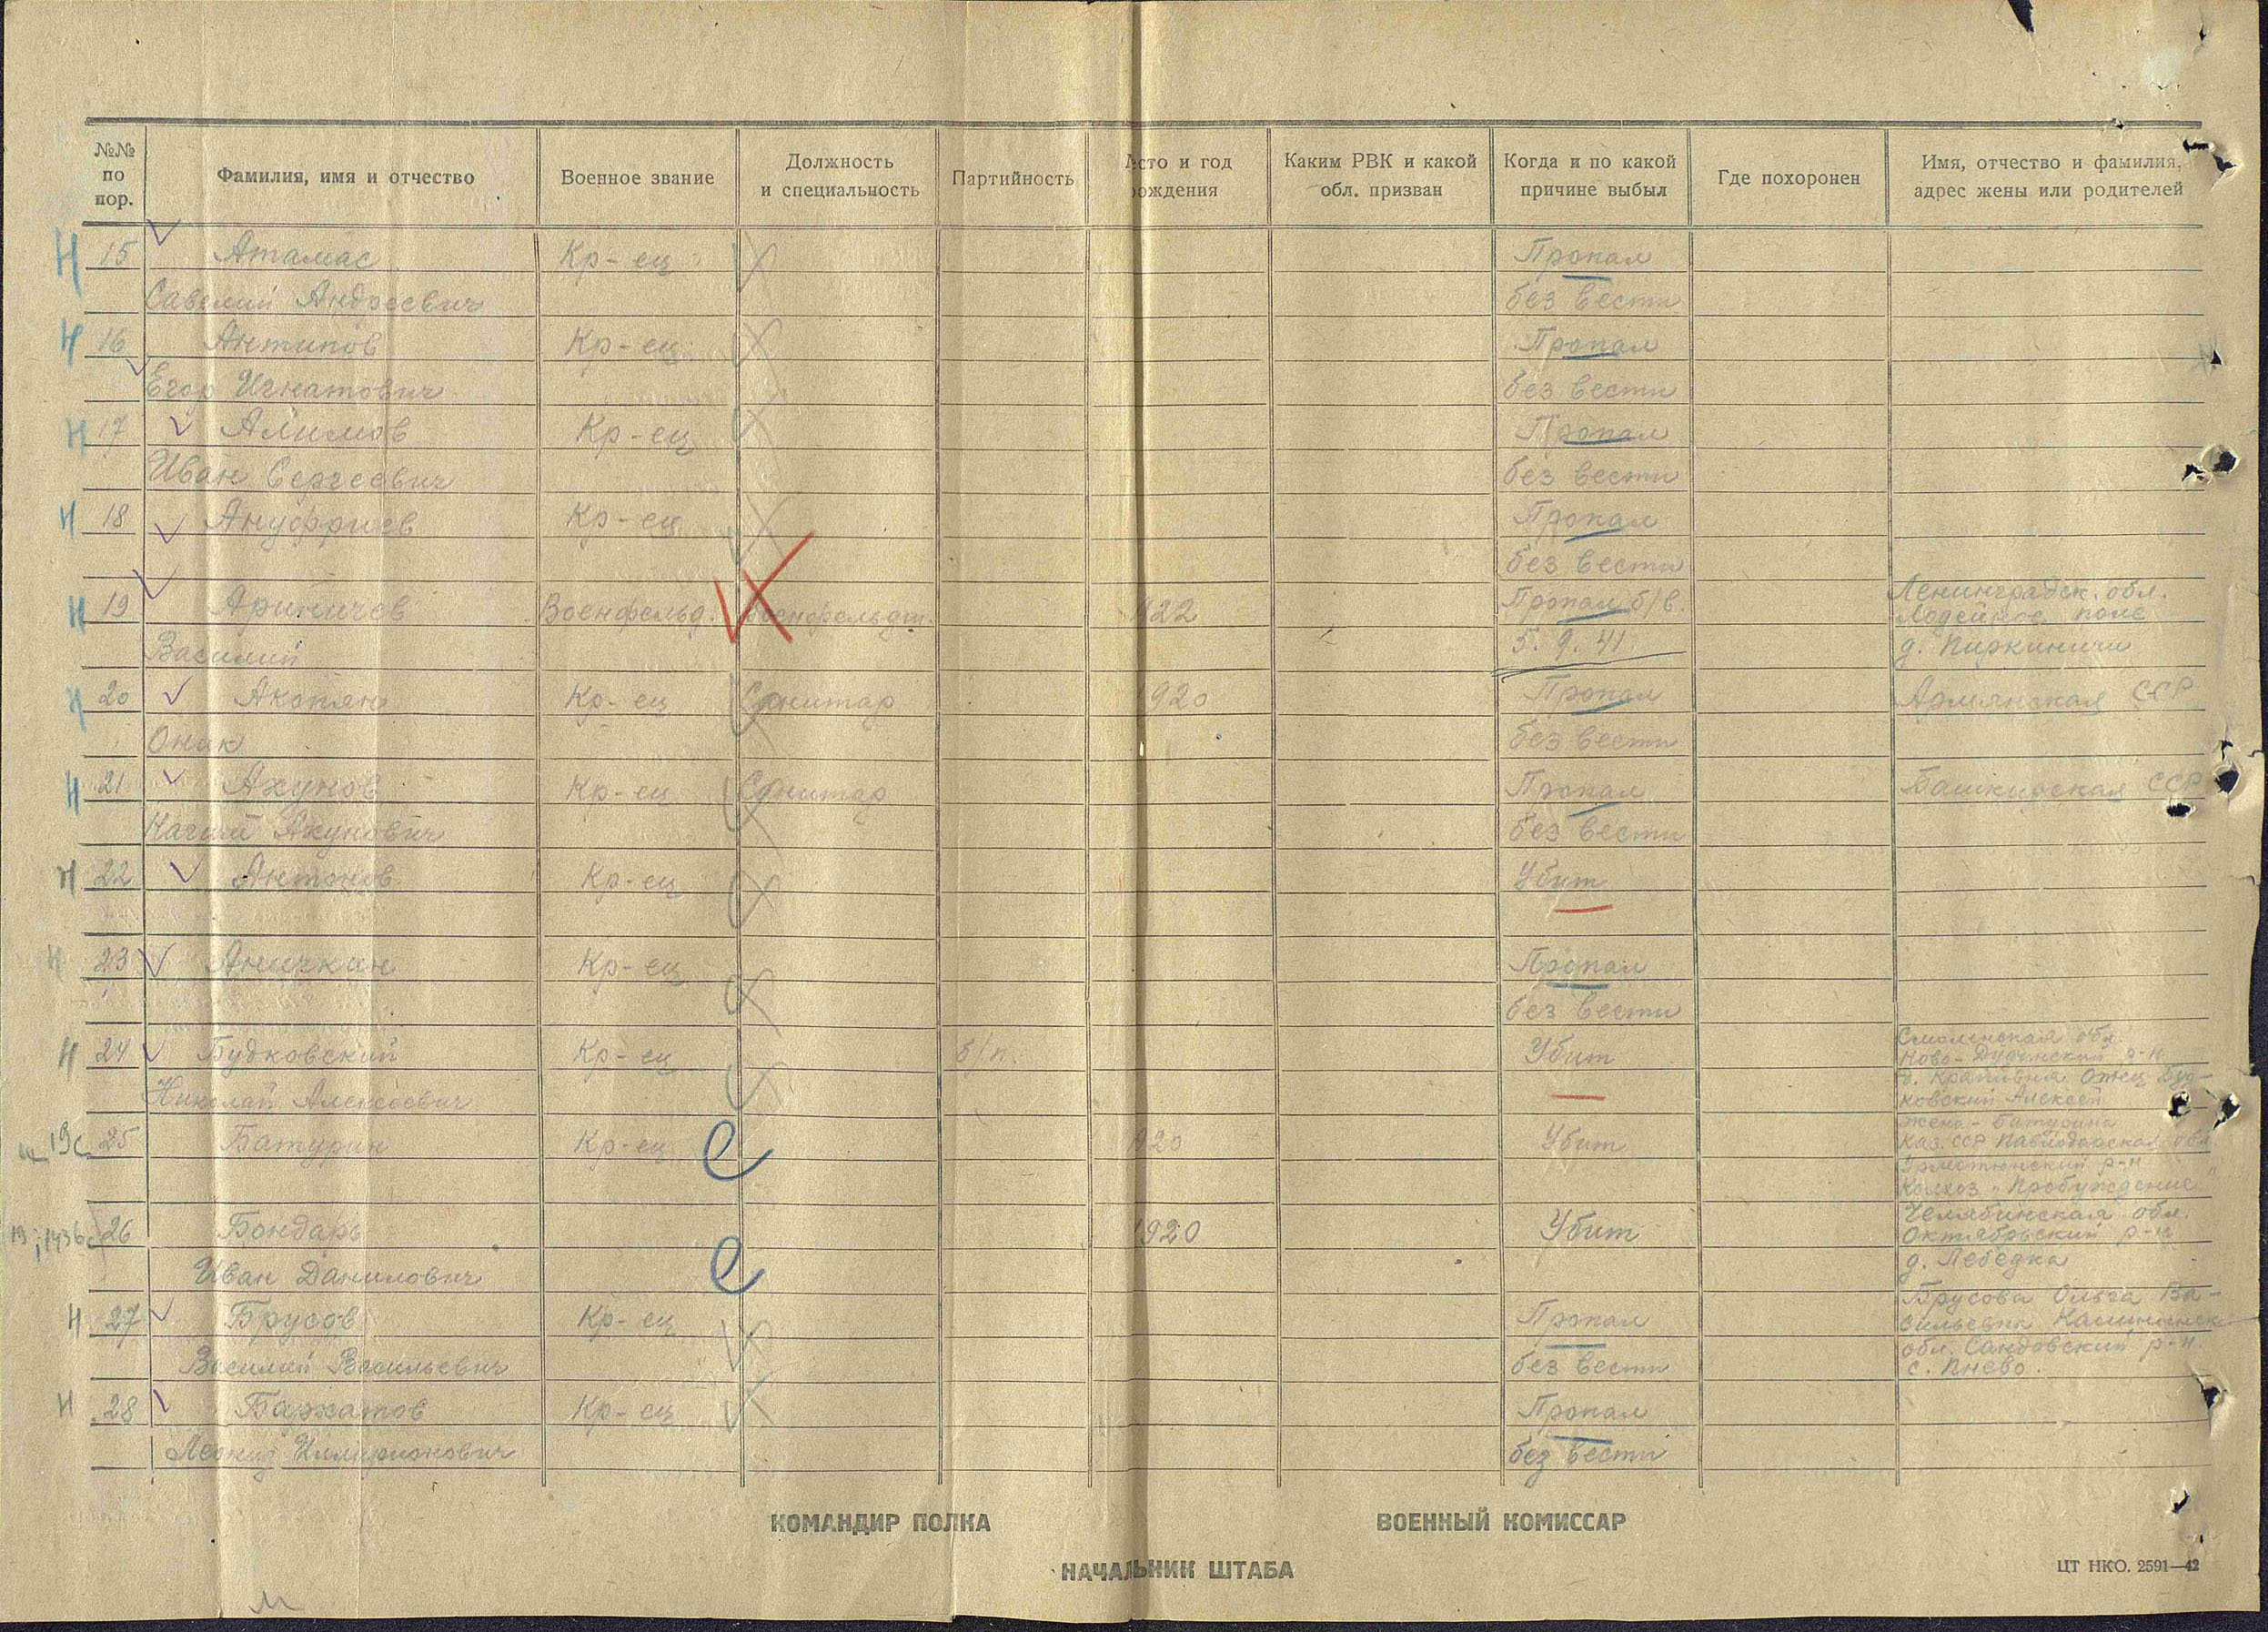 №№ по пор.
Фамилия, имя и отчество
Военное звание
Должность и специальность
Партийность
есто и год рождения
Каким РВК и какой обл. призван
Когда и по какой причине выбыл
Где похоронен
Имя, отчество и фамилия, адрес жены или родителей
Н 15 Атамас Кр-ец Пропал
Савелий Андреевич без вести
Н 16 Антипов Кр-ец Пропал
Егор Игнатович без вести
Н 17 Алимов Кр-ец Пропал
Иван Сергеевич без вести
Н 18 Ануфриев Кр-ец Пропал
без вести
Ленинградск. обл.
Н 19 Ариничев Военфельд. Военфельдш. 1922 Пропал б/в. Лодейное поле
Василий 5.9.41. д. Пиркиничи
Н 20 Акопян Кр-ец Санитар 1920 Пропал Армянская ССР
Оник без вести
Н 21 Ахунов Кр-ец Санитар Пропал Башкирская ССР
Ахунович без вести
Н 22 Антонов Кр-ец Убит
Н 23 Аничкин Кр-ец Пропал
без вести
Смоленская обл.
Н 24 Будковский Кр-ец б/п. Убит Ново-Дугинский р-н
д. Крапивня Отец Буд-
Николай Алексеевич ковский Алексей
жена - Батурина
19с 25 Батурин Кр-ец 1920 Убит Каз. ССР Павлодарская обл.
р-н
Колхоз "Пробуждение"
Челябинская обл.
26 Бондарь 1920 Убит Октябрьский р-н
Иван Данилович д. Лебедка
Брусова Ольга Ва-
Н 27 Брусов Кр-ец Пропал сильевна Калининск.
обл. Сандовский р-н.
Василий Васильевич без вести с. Пнево.
Н 28 Бархатов Кр-ец Пропал
Леонид Илларионович без вести
КОМАНДИР ПОЛКА
ВОЕННЫЙ КОМИССАР
НАЧАЛЬНИК ШТАБА
ЦТ НКО. 2591—42